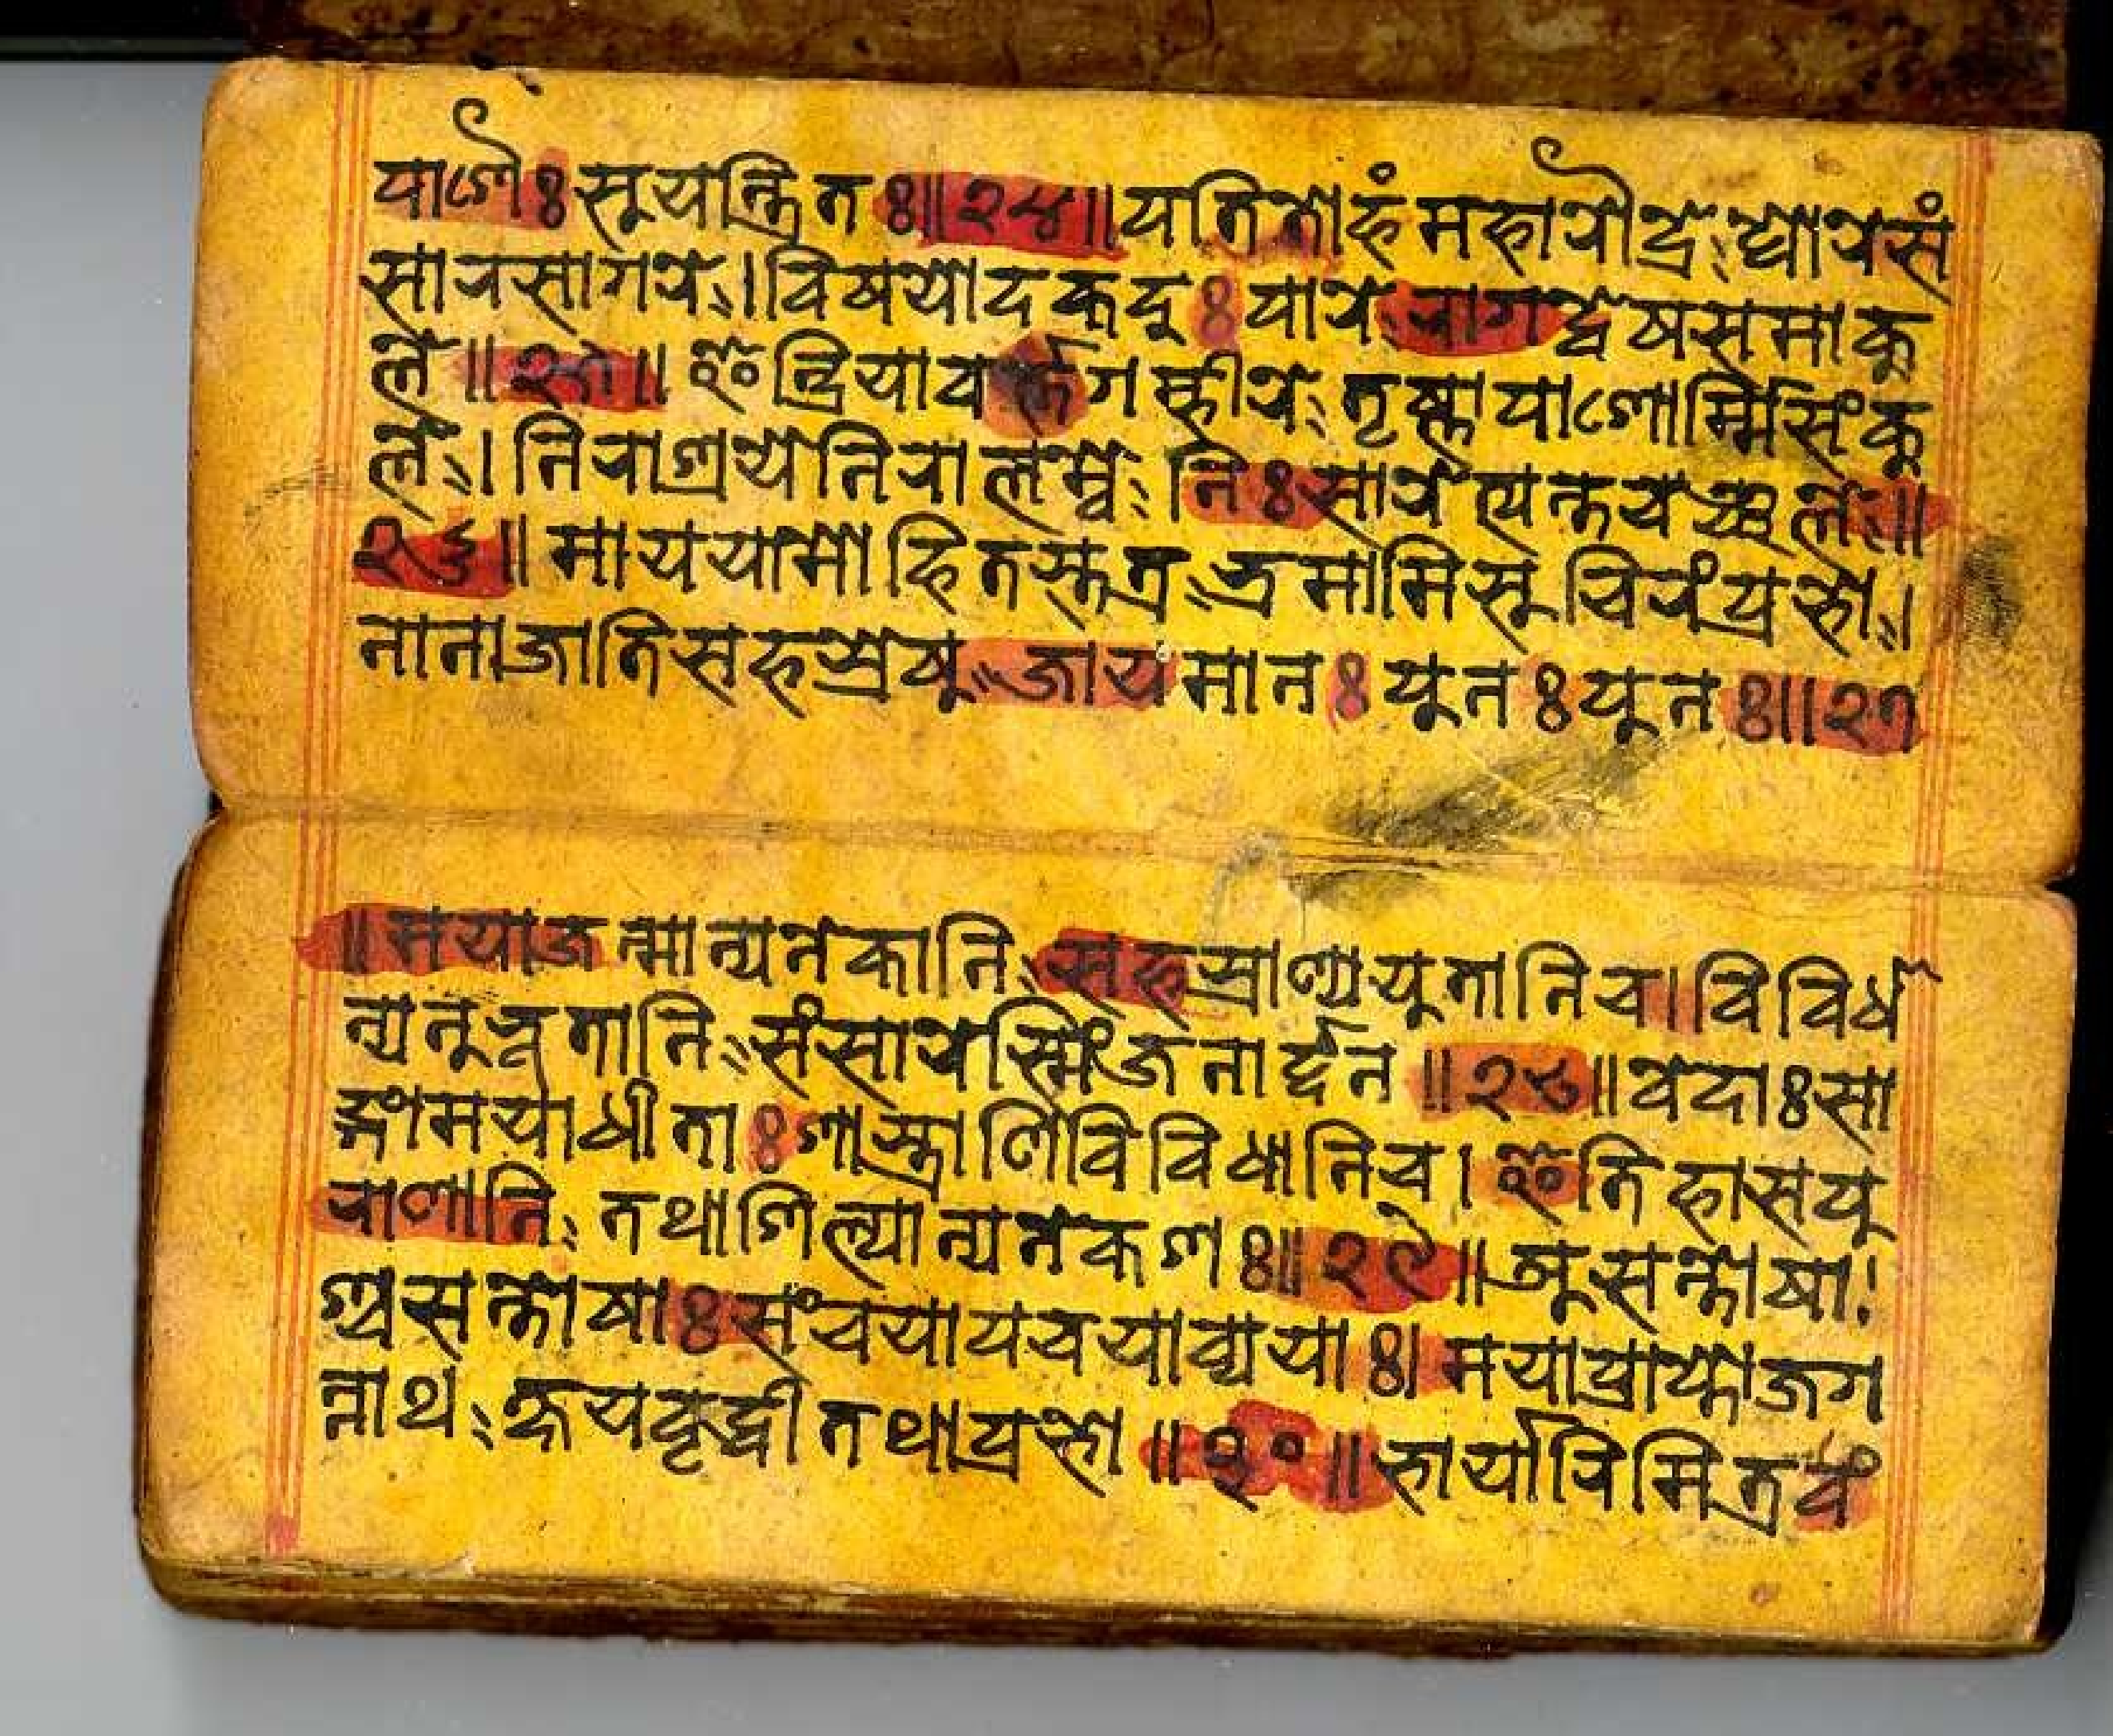 पाशैः सुयन्त्रितः॥२४॥पतितोहं महारौद्रे घोरे सं
सारसागरे। विषयोदकदुःपारे रागद्वेषसमाकु
ले॥२५॥ इन्द्रियावर्त्तगम्भीरे तृष्णापाशोर्म्मिसंकु
ले। निराश्रये निरालम्बे निःसारेत्यन्तचञ्चले॥
२६॥ मायया मोहितस्तत्र भ्रमामि सुचिरं प्रभो।
नानाजातिसहस्रेषु जायमानः पुनः पुनः॥२७
॥मया जन्मान्यनेकानि सहस्राण्ययुतानि च। विविधा
न्यनुभूतानि संसारेस्मिं जनार्द्दन॥२८॥ वेदाः सा
ङ्गा मयाधीताः शास्त्राणि विविधानि च। इतिहासपु
राणानि तथा शिल्पान्यनेकशः॥२९॥ असन्तोषा
श्च सन्तोषाः संचयापचयाव्ययाः। मया प्राप्ता जग
न्नाथ क्षयवृद्धी तथा प्रभो॥३०॥ भार्यारिमित्रवं